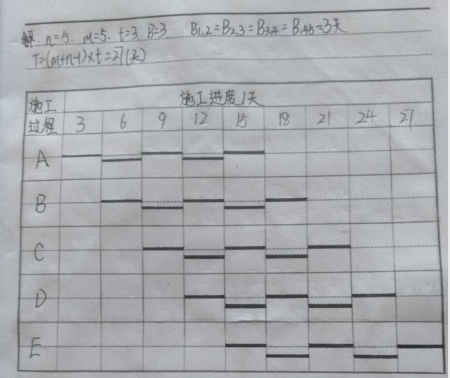 解: n=5. m=5. t=3. B=3. B1.2=B2.3=B3.4=B.4.5=3天
T=(m+n-1)×t=27(天)
施工过程 施工进度/天
3 6 9 12 15 18 21 24 27
A
B
C
D
E